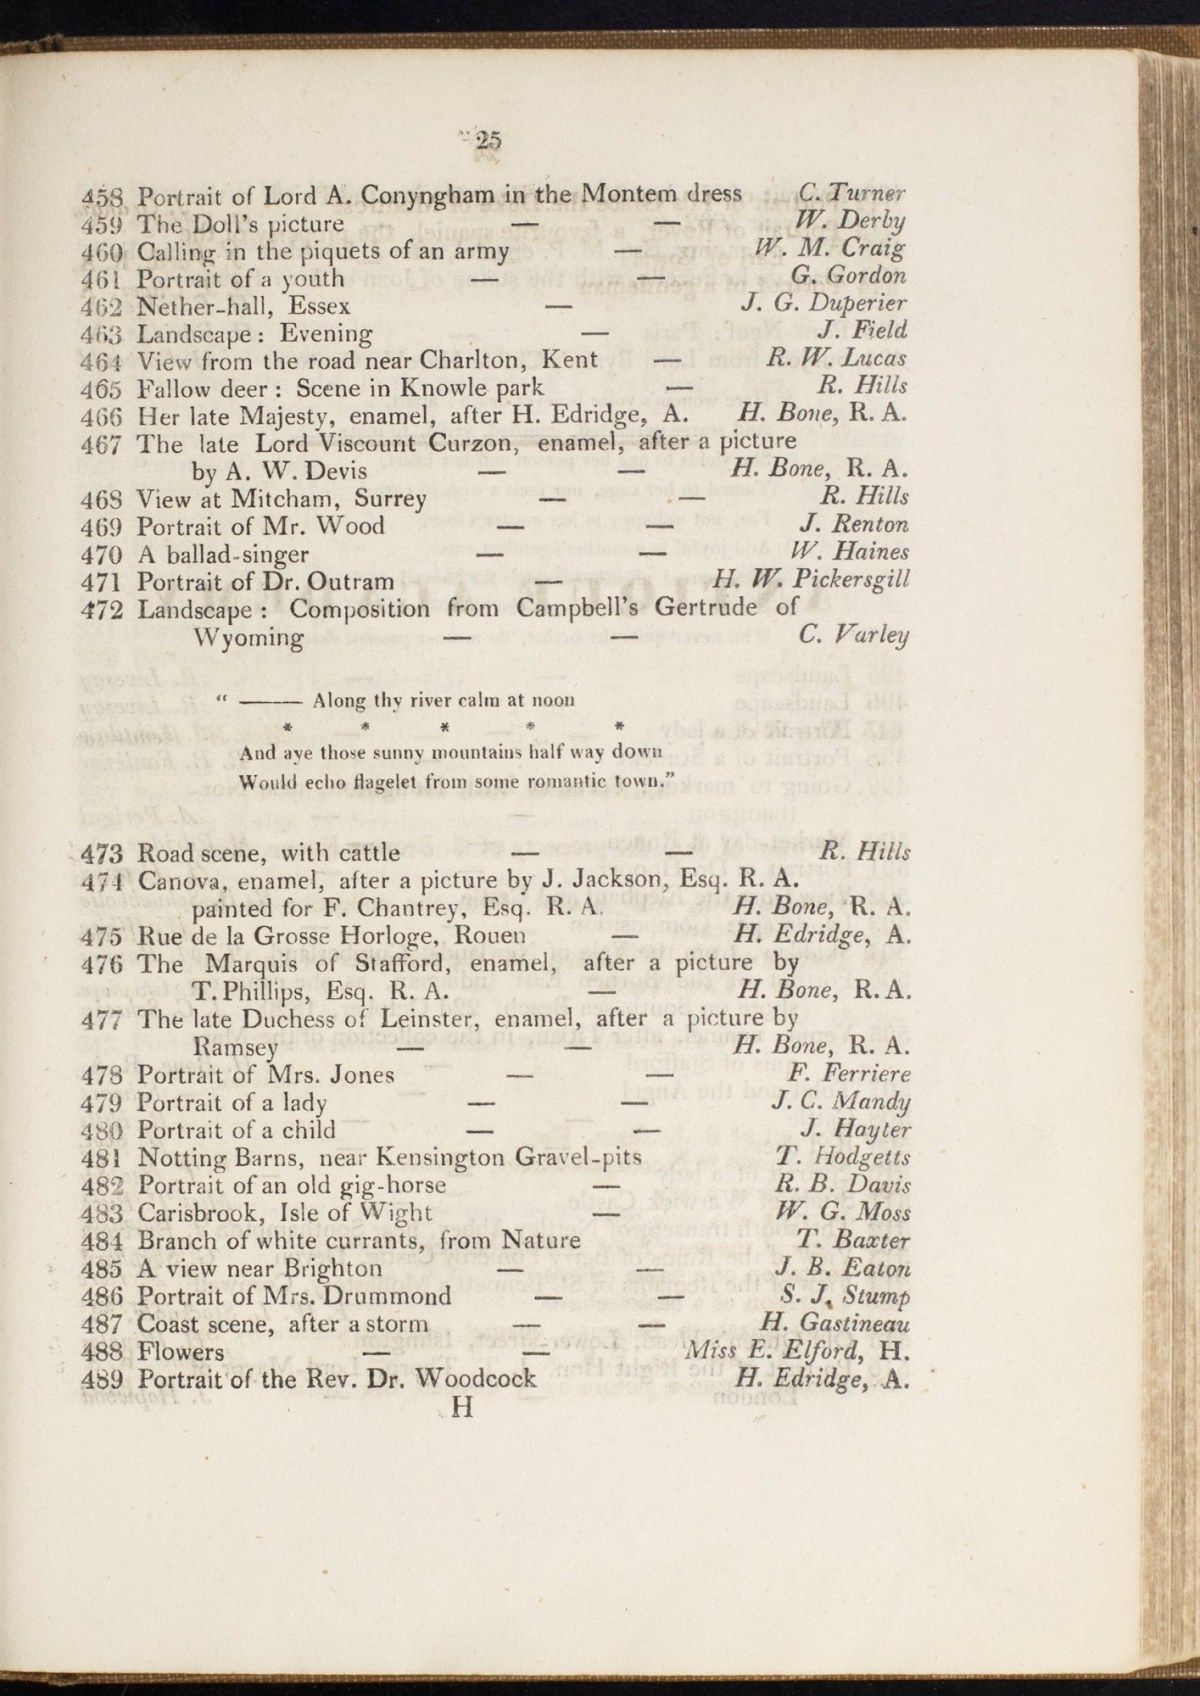 25
458 Portrait of Lord A. Conyngham in the Montem dress C. Turner
459 The Doll's picture — — W. Derby
460 Calling in the piquets of an army — W. M. Craig
461 Portrait of a youth — — G. Gordon
462 Nether-hall, Essex — J. G. Duperier
463 Landscape : Evening — J. Field
464 View from the road near Charlton, Kent — R. W. Lucas
465 Fallow deer : Scene in Knowle park — R. Hills
466 Her late Majesty, enamel, after H. Edridge, A. H. Bone, R. A.
467 The late Lord Viscount Curzon, enamel, after a picture
by A. W. Devis — — H. Bone, R. A.
468 View at Mitcham, Surrey — — R. Hills
469 Portrait of Mr. Wood — — J. Renton
470 A ballad-singer — — W. Haines
471 Portrait of Dr. Outram — H. W. Pickersgill
472 Landscape : Composition from Campbell's Gertrude of
Wyoming — — C. Varley
“ —— Along thy river calm at noon
* * * * *
And aye those sunny mountains half way down
Would echo flagelet from some romantic town.”
473 Road scene, with cattle — — R. Hills
474 Canova, enamel, after a picture by J. Jackson, Esq. R. A.
painted for F. Chantrey, Esq. R. A. H. Bone, R. A.
475 Rue de la Grosse Horloge, Rouen — H. Edridge, A.
476 The Marquis of Stafford, enamel, after a picture by
T. Phillips, Esq. R. A. — H. Bone, R. A.
477 The late Duchess of Leinster, enamel, after a picture by
Ramsey — — H. Bone, R. A.
478 Portrait of Mrs. Jones — — F. Ferriere
479 Portrait of a lady — — J. C. Mandy
480 Portrait of a child — — J. Hayter
481 Notting Barns, near Kensington Gravel-pits T. Hodgetts
482 Portrait of an old gig-horse — R. B. Davis
483 Carisbrook, Isle of Wight — W. G. Moss
484 Branch of white currants, from Nature T. Baxter
485 A view near Brighton — — J. B. Eaton
486 Portrait of Mrs. Drummond — — S. J. Stump
487 Coast scene, after a storm — — H. Gastineau
488 Flowers — — Miss E. Elford, H.
489 Portrait of the Rev. Dr. Woodcock H. Edridge, A.
H